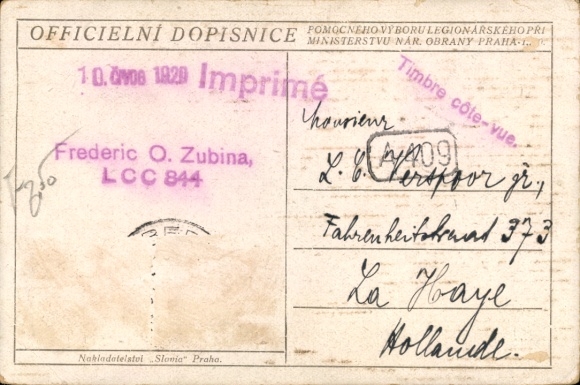 OFFICIELNÍ DOPISNICE
POMOCNÉHO VÝBORU LEGIONÁRSKÉHO PŘI
MINISTERSTVU NÁR. OBRANY PRAHA-
10. 1920 Imprimé
Timbre côte-vue.
Frederic O. Zubina,
LCC 844
Monsieur
A 409
L. C. Verspoor jr.,
Fahrenheitstraat 373
La Haye
Hollande.
Nakladatelství „Slavia" Praha.